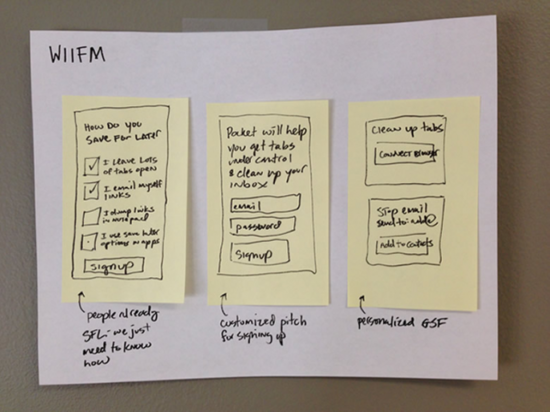 WIIFM
HOW DO YOU
SAVE FOR LATER
I LEAVE LOTS
OF TABS OPEN
I EMAIL MYSELF
LINKS
I DUMP LINKS
IN NOTEPAD
I USE SAVE LATER
OPTIONS IN APPS
SIGNUP
people already
SFL - we just
need to know
how
Pocket will help
you get tabs
under control
& clean up your
inbox
email
password
signup
customized pitch
for signing up
Clean up tabs
connect browser
Stop email
send to: add@
Add to contacts
personalized GSF